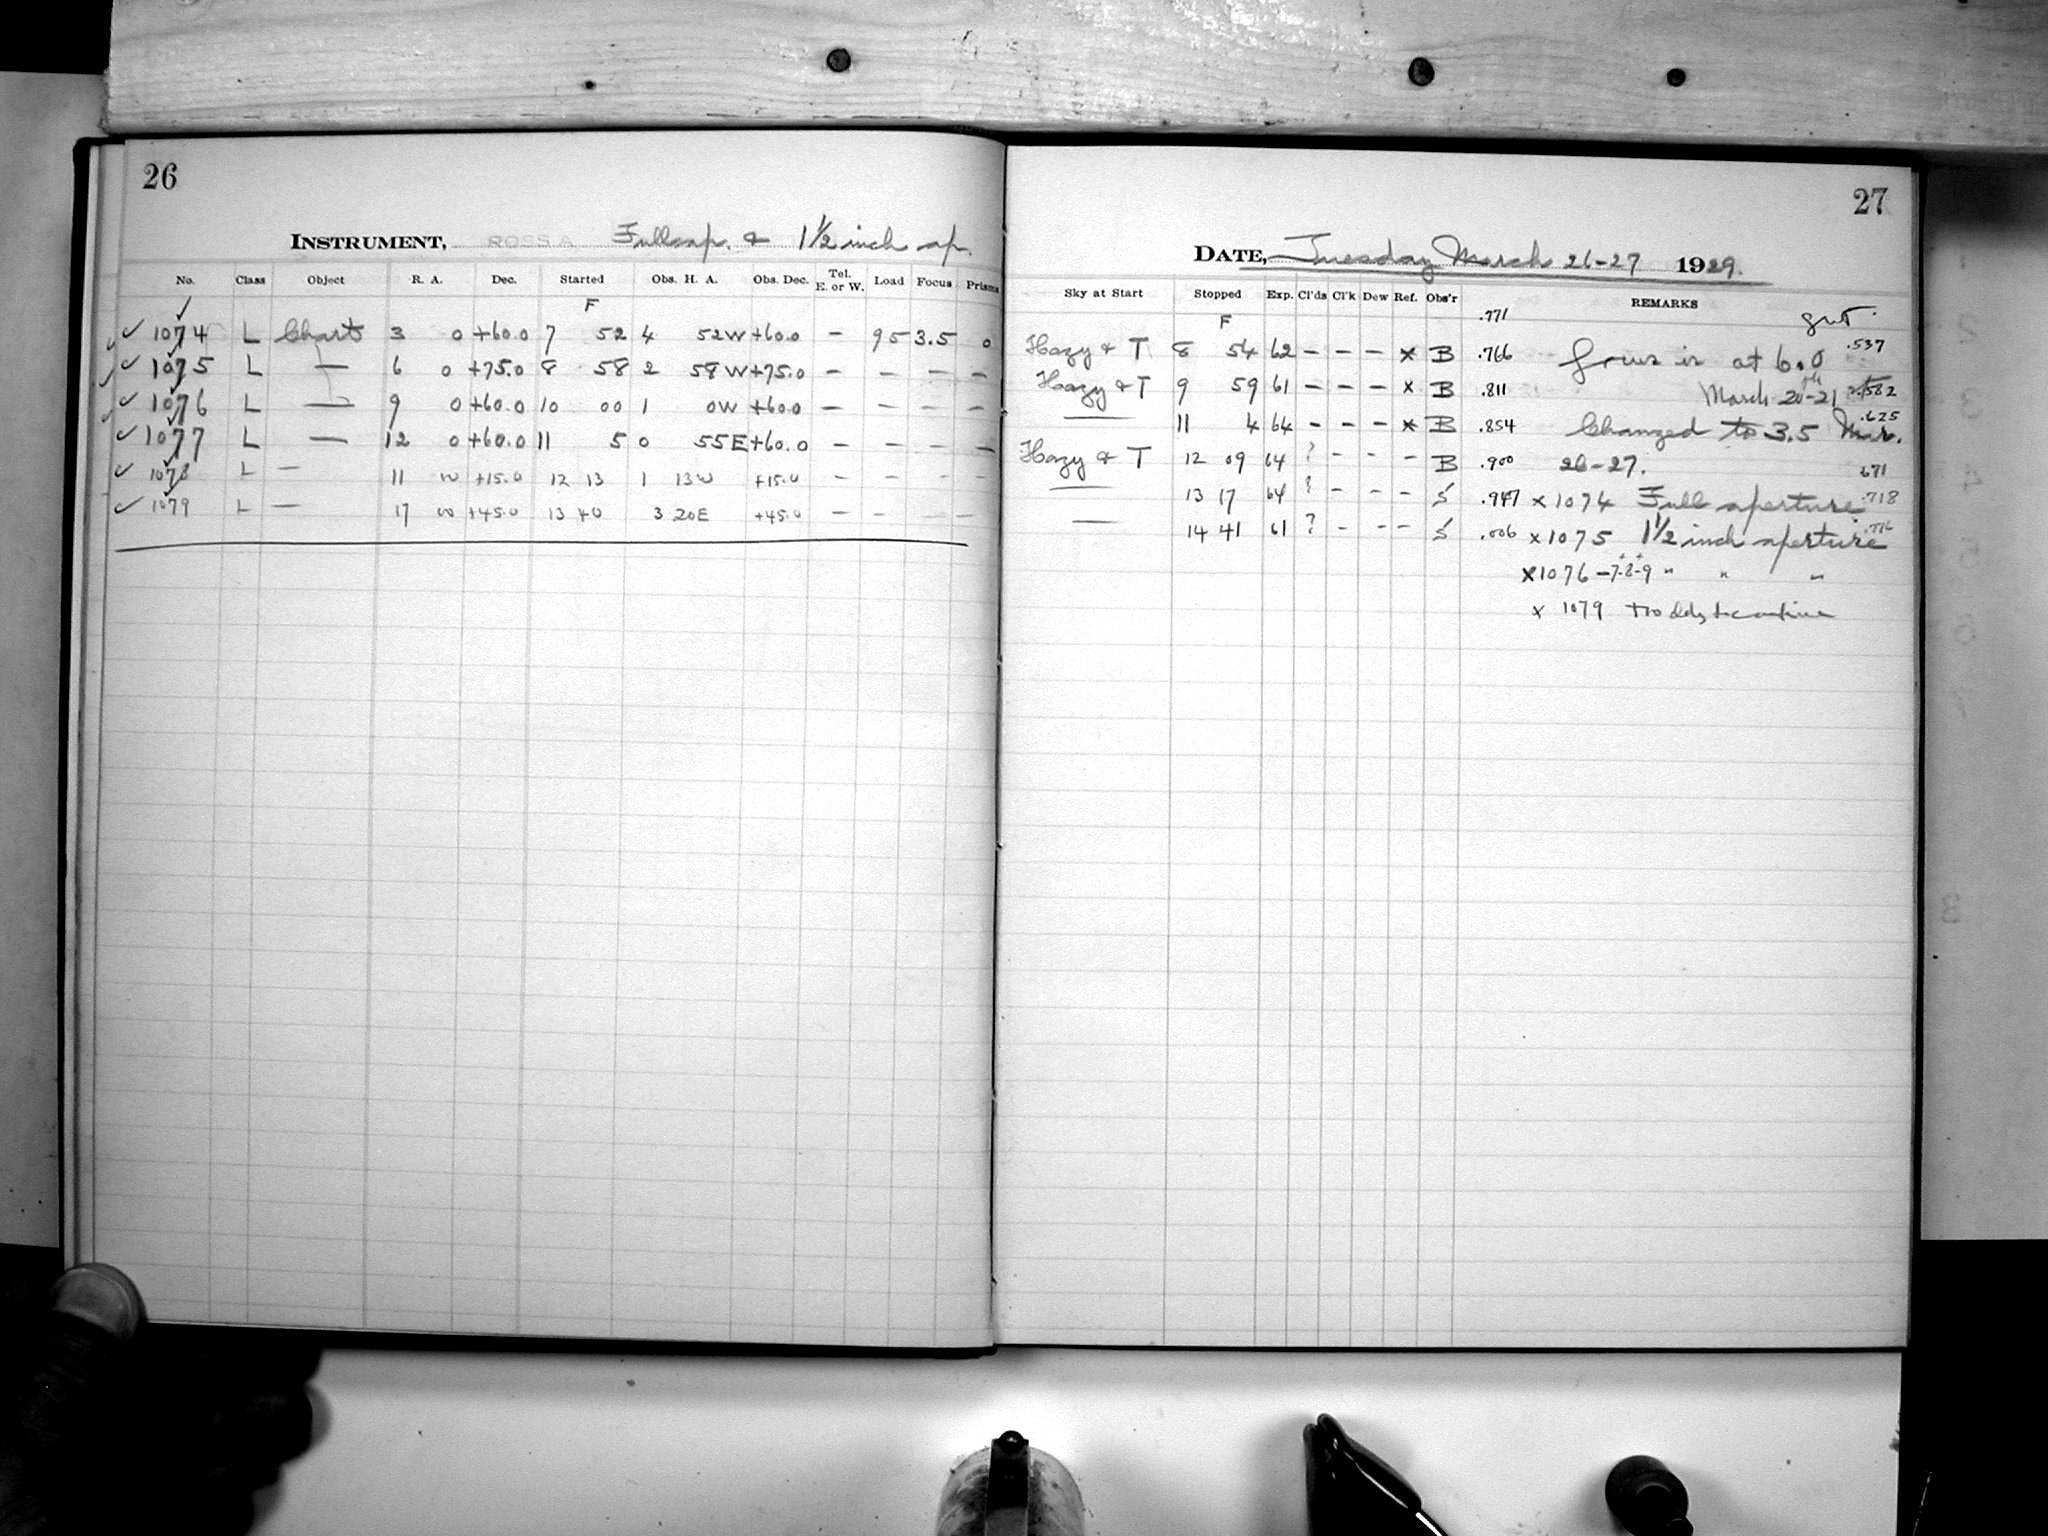 26
INSTRUMENT, ROSS A Full ap. & 1 1/2 inch ap.
No. Class Object R. A. Dec. Started Obs. H. A. Obs. Dec. Tel. E. or W. Load Focus Prisms
F
✓ 1074 L Chart 3 0 +60.0 7 52 4 52W +60.0 – 95 3.5 0
✓ 1075 L — 6 0 +75.0 8 58 2 58W +75.0 – – – –
✓ 1076 L — 9 0 +60.0 10 00 1 0W +60.0 – – – –
✓ 1077 L — 12 0 +60.0 11 5 0 55E +60.0 – – – –
✓ 1078 L — 11 +15.0 12 13 1 13W +15.0 – – – –
✓ 1079 L — 17 +45.0 13 40 3 20E +45.0 – – – –
27
DATE, Tuesday March 26-27 1929.
Sky at Start Stopped Exp. Cl'ds Cl'k Dew Ref. Obs'r REMARKS
F .771
Hazy & T 8 54 62 – – – x B .766 focus is at 6.0 .537
Hazy & T 9 59 61 – – – x B .811 March 20-21 .582
— 11 4 64 – – – x B .854 Changed to 3.5 Mar. .625
Hazy & T 12 09 64 ? – – – B .900 26-27. .671
— 13 17 64 ? – – – S .947 x 1074 Full aperture .718
— 14 41 61 ? – – – S .006 x 1075 1 1/2 inch aperture .776
x 1076 – 7-8-9 " " "
x 1079